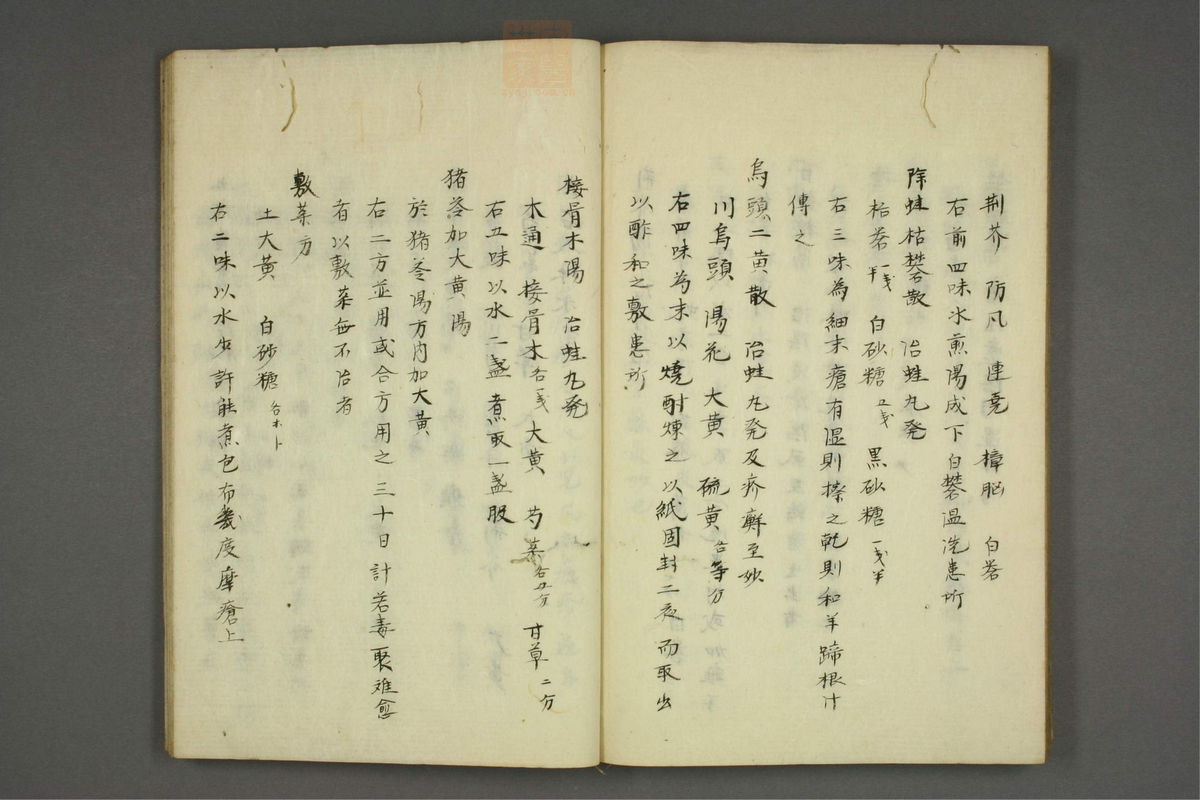 荊芥 防凡 連克 樟脳 白礬
右前四味水煎湯成下白礬温洗患所
除蛙枯礬散 治蛙九発
枯礬一戋半 白砂糖五戋 黒砂糖一戋半
右三味為細末瘡有湿則擦之乾則和羊蹄根汁
傅之
烏頭二黄散 治蛙九発及疥癬至妙
川烏頭 湯花 大黄 硫黄各等分
右四味為末以焼酎煉之以紙固封二夜而取出
以酢和之敷患所
接骨木湯 治蛙九発
木通 接骨木各戋 大黄 芍薬各五分 甘草二分
右五味以水二盞煮取一盞服
猪苓加大黄湯
於猪苓湯方内加大黄
右二方並用或合方用之三十日計若毒聚难愈
者以敷薬無不治者
敷薬方
土大黄 白砂糖
右二味以水少許能煮包布幾度摩瘡上